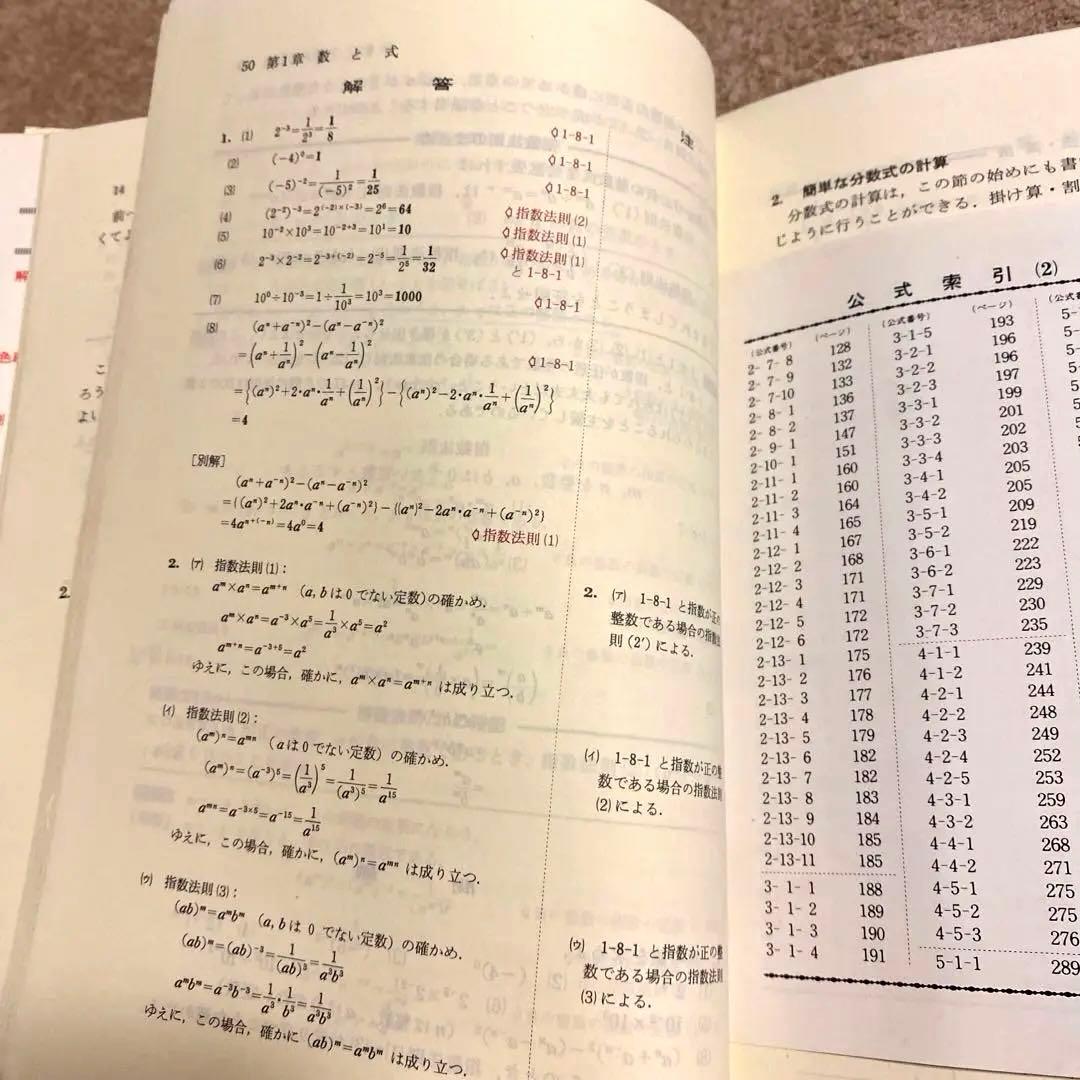 50 第1章 数 と 式
解 答
注
1. (1) 2⁻³=1/2³=1/8 ◊1-8-1
(2) (-4)⁰=1 ◊1-8-1
(3) (-5)⁻²=1/(-5)²=1/25 ◊1-8-1
(4) (2⁻²)⁻³=2⁽⁻²⁾×⁽⁻³⁾=2⁶=64 ◊指数法則(2)
(5) 10⁻²×10³=10⁻²⁺³=10¹=10 ◊指数法則(1)
(6) 2⁻³×2⁻²=2⁻³⁺⁽⁻²⁾=2⁻⁵=1/2⁵=1/32 ◊指数法則(1)
と1-8-1
(7) 10⁰÷10⁻³=1÷1/10³=10³=1000 ◊1-8-1
(8) (aⁿ+a⁻ⁿ)²-(aⁿ-a⁻ⁿ)²
=(aⁿ+1/aⁿ)²-(aⁿ-1/aⁿ)² ◊1-8-1
={(aⁿ)²+2・aⁿ・1/aⁿ+(1/aⁿ)²}-{(aⁿ)²-2・aⁿ・1/aⁿ+(1/aⁿ)²}
=4
[別解]
(aⁿ+a⁻ⁿ)²-(aⁿ-a⁻ⁿ)²
={(aⁿ)²+2aⁿ・a⁻ⁿ+(a⁻ⁿ)²}-{(aⁿ)²-2aⁿ・a⁻ⁿ+(a⁻ⁿ)²}
=4aⁿ⁺⁽⁻ⁿ⁾=4a⁰=4 ◊指数法則(1)
2. (ア) 指数法則(1):
aᵐ×aⁿ=aᵐ⁺ⁿ (a, bは0でない定数)の確かめ.
aᵐ×aⁿ=a⁻³×a⁵=1/a³×a⁵=a²
aᵐ⁺ⁿ=a⁻³⁺⁵=a²
ゆえに, この場合, 確かに, aᵐ×aⁿ=aᵐ⁺ⁿ は成り立つ.
(イ) 指数法則(2):
(aᵐ)ⁿ=aᵐⁿ (aは0でない定数)の確かめ.
(aᵐ)ⁿ=(a⁻³)⁵=(1/a³)⁵=1/(a³)⁵=1/a¹⁵
aᵐⁿ=a⁻³×⁵=a⁻¹⁵=1/a¹⁵
ゆえに, この場合, 確かに, (aᵐ)ⁿ=aᵐⁿ は成り立つ.
(ウ) 指数法則(3):
(ab)ᵐ=aᵐbᵐ (a, bは0でない定数)の確かめ.
(ab)ᵐ=(ab)⁻³=1/(ab)³=1/a³b³
aᵐbᵐ=a⁻³b⁻³=1/a³・1/b³=1/a³b³
ゆえに, この場合, 確かに (ab)ᵐ=aᵐbᵐ は成り立つ.
2. (ア) 1-8-1 と指数が正の
整数である場合の指数法
則(2′)による.
(イ) 1-8-1 と指数が正の整
数である場合の指数法則
(2)による.
(ウ) 1-8-1 と指数が正の整
数である場合の指数法則
(3)による.
2. 簡単な分数式の計算
分数式の計算は, この節の始めにも書
じように行うことができる. 掛け算・割
公 式 索 引 (2)
(公式番号) (ページ) (公式番号) (ページ) (公式
2- 7- 8 128 3-1-5 193 5-
2- 7- 9 132 3-2-1 196 5-
2- 7-10 133 3-2-2 196 5-
2- 8- 1 136 3-2-3 197
2- 8- 2 137 3-3-1 199
2- 9- 1 147 3-3-2 201
2-10- 1 151 3-3-3 202
2-11- 1 160 3-3-4 203
2-11- 2 160 3-4-1 205
2-11- 3 164 3-4-2 205
2-11- 4 165 3-5-1 209
2-12- 1 167 3-5-2 219
2-12- 2 168 3-6-1 222
2-12- 3 171 3-6-2 223
2-12- 4 171 3-7-1 229
2-12- 5 172 3-7-2 230
2-12- 6 172 3-7-3 235
2-13- 1 175 4-1-1 239
2-13- 2 176 4-1-2 241
2-13- 3 177 4-2-1 244
2-13- 4 178 4-2-2 248
2-13- 5 179 4-2-3 249
2-13- 6 182 4-2-4 252
2-13- 7 182 4-2-5 253
2-13- 8 183 4-3-1 259
2-13- 9 184 4-3-2 263
2-13-10 185 4-4-1 268
2-13-11 185 4-4-2 271
3- 1- 1 188 4-5-1 275
3- 1- 2 189 4-5-2 275
3- 1- 3 190 4-5-3 276
3- 1- 4 191 5-1-1 289